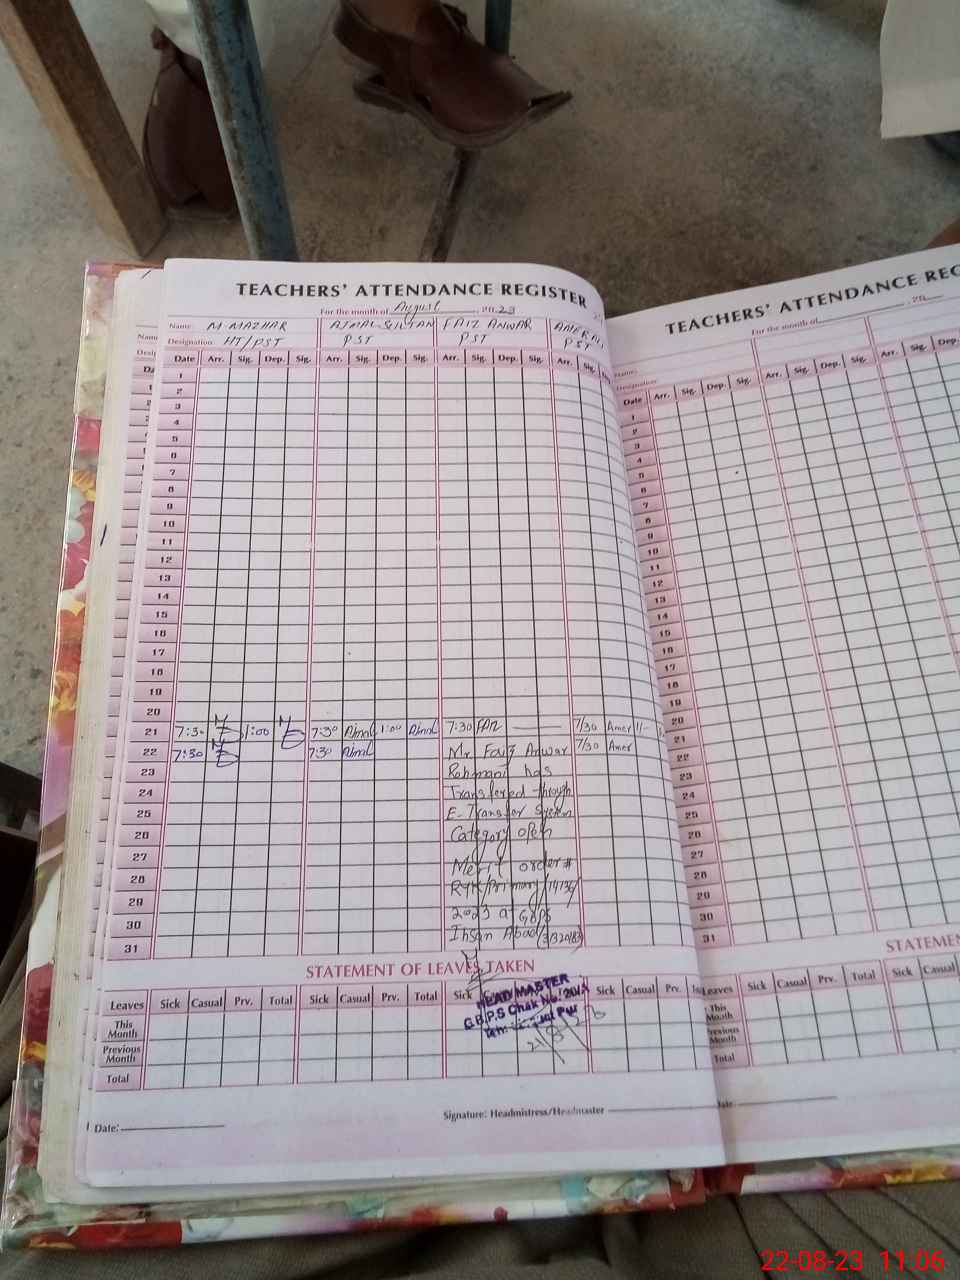 TEACHERS' ATTENDANCE REGISTER
For the month of August, 2023
Name: M-MAZHAR AJMAL SULTAN FAIZ ANWAR AMER ALI
Designation: HT/PST PST PST PST
Date Arr. Sig. Dep. Sig. Arr. Sig. Dep. Sig. Arr. Sig. Dep. Sig. Arr. Sig.
1
2
3
4
5
6
7
8
9
10
11
12
13
14
15
16
17
18
19
20
21 7:30 1:00 7:30 1:00 7:30 7/30 Amer
22 7:30 7:30 Mr. Faiz Anwar 7/30 Amer
23 Rehmani has
24 Transfered through
25 E-Transfer System
26 Category open
27 Merit order #
28 RYK/Primary/
29 2023 at GBPS
30 Ihsan Abad
31
STATEMENT OF LEAVES TAKEN
Leaves Sick Casual Prv. Total Sick Casual Prv. Total Sick Casual Prv.
This Month
Previous Month
Total
HEAD MASTER
G.B.P.S Chak No.
Signature: Headmistress/Headmaster
Date:
TEACHERS' ATTENDANCE REG
For the month of , 20
Name:
Designation:
Date Arr. Sig. Dep. Sig. Arr. Sig. Dep. Sig. Arr. Sig. Dep.
1
2
3
4
5
6
7
8
9
10
11
12
13
14
15
16
17
18
19
20
21
22
23
24
25
26
27
28
29
30
31
STATEMEN
Leaves Sick Casual Prv. Total Sick Casual
This Month
Previous Month
Total
Date:
22-08-23 11:06